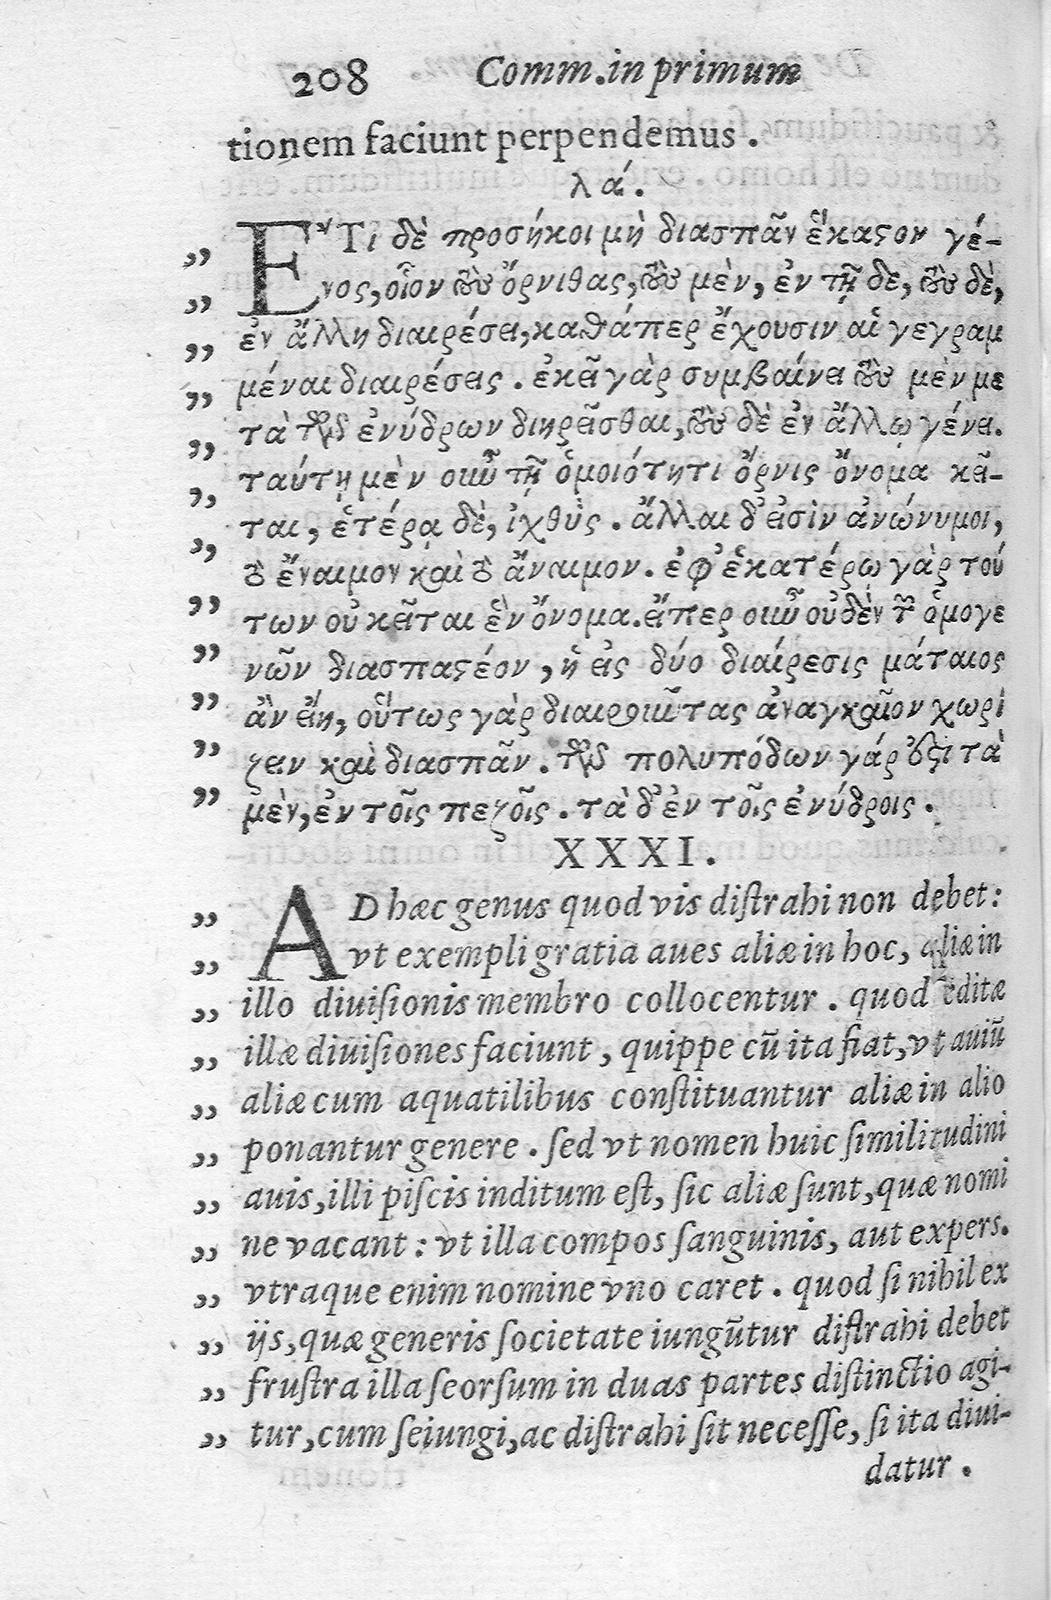 208 Comm. in primum
tionem faciunt perpendemus.
λά.
ἜΤι δὲ προσήκοι μὴ διασπᾶν ἕκαςον γέ-
νος, οἷον τοὺς ὄρνιθας, τοὺς μὲν, ἐν τῇ δε, τοὺς δὲ,
ἐν ἄλλη διαιρέσει, καθάπερ ἔχουσιν αἱ γεγραμ
μέναι διαιρέσεις. ἐκεῖ γὰρ συμβαίνει τοὺς μὲν με
τὰ τῶν ἐνύδρων διηρεῖσθαι, τοὺς δὲ ἐν ἄλλῳ γένει.
ταύτῃ μὲν οὖν τῇ ὁμοιότητι ὄρνις ὄνομα κεῖ-
ται, ἑτέρᾳ δὲ, ἰχθὺς. ἄλλαι δ' εἰσὶν ἀνώνυμοι,
τὸ ἔναιμον καὶ τὸ ἄναιμον. ἐφ' ἑκατέρῳ γὰρ τού
των οὐ κεῖται ἓν ὄνομα. εἴπερ οὖν οὐδὲν τῶν ὁμογε
νῶν διασπαςέον, ἡ εἰς δύο διαίρεσις μάταιος
ἂν εἴη, οὕτως γὰρ διαιροῦντας ἀναγκαῖον χωρί
ζειν καὶ διασπᾶν. τῶν πολυπόδων γάρ ἐςι τὰ
μὲν, ἐν τοῖς πεζοῖς. τὰ δ' ἐν τοῖς ἐνύδροις.
XXXI.
„ AD hæc genus quod vis distrahi non debet:
„ vt exempli gratia aues aliæ in hoc, aliæ in
„ illo diuisionis membro collocentur. quod editæ
„ illæ diuisiones faciunt, quippe cū ita fiat, vt auiū
„ aliæ cum aquatilibus constituantur aliæ in alio
„ ponantur genere. sed vt nomen huic similitudini
„ auis, illi piscis inditum est, sic aliæ sunt, quæ nomi
„ ne vacant: vt illa compos sanguinis, aut expers.
„ vtraque enim nomine vno caret. quod si nihil ex
„ ijs, quæ generis societate iungūtur distrahi debet
„ frustra illa seorsum in duas partes distinctio agi-
„ tur, cum seiungi, ac distrahi sit necesse, si ita diui-
datur.